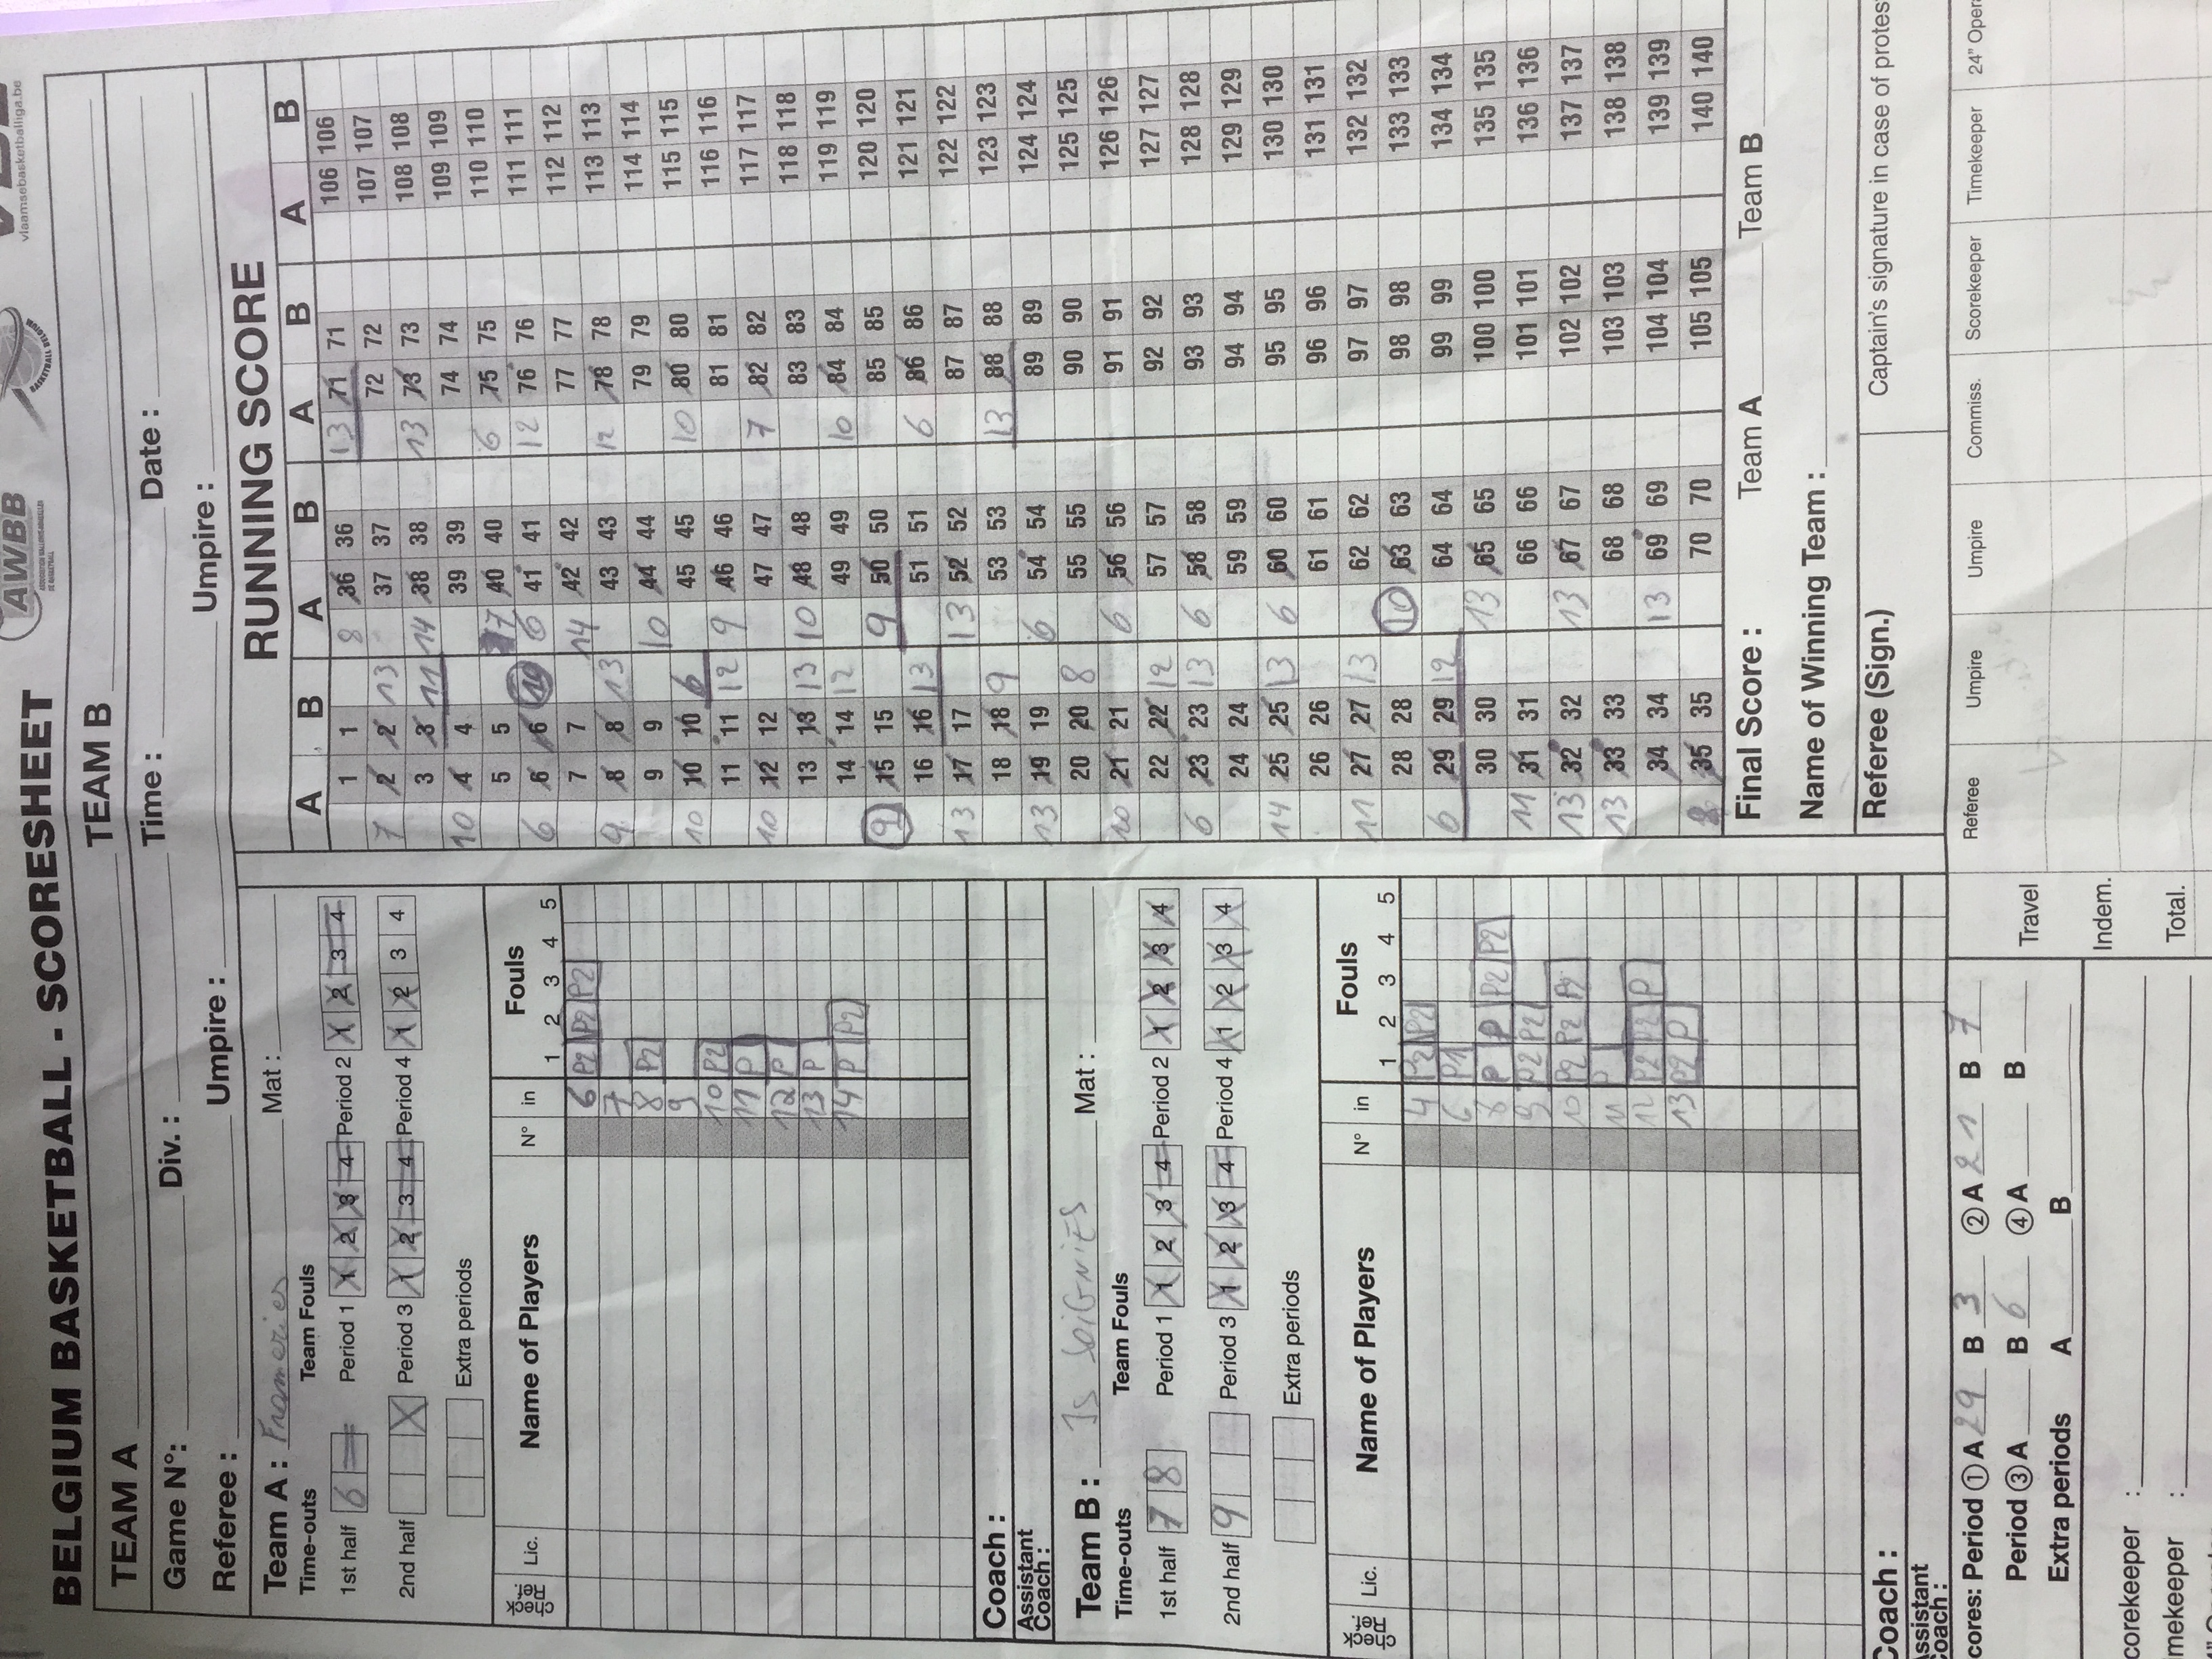 vlaamsebasketballiga.be
AWBB
BELGIUM BASKETBALL - SCORESHEET
TEAM A TEAM B
Game N°: Div. : Time : Date :
Referee : Umpire : Umpire :
Team A : Frameries Mat :
Time-outs Team Fouls
1st half 6 Period 1 1 2 3 4 Period 2 1 2 3 4
2nd half X Period 3 1 2 3 4 Period 4 1 2 3 4
Extra periods
Lic. Name of Players N° in Fouls 1 2 3 4 5
6 P2 P2 P2
7
8 P2
9
10 P2
11 P
12 P
13 P
14 P P2
Coach :
Assistant Coach :
Team B : JS SOIGNIES Mat :
Time-outs Team Fouls
1st half 7 8 Period 1 1 2 3 4 Period 2 1 2 3 4
2nd half 9 Period 3 1 2 3 4 Period 4 1 2 3 4
Extra periods
Lic. Name of Players N° in Fouls 1 2 3 4 5
4 P2 P2
6 P1
8 P P P2 P2
9 P2 P2
10 P2 P2 P2
11 P
12 P2 P2 P
13 P2 P
Coach :
Assistant Coach :
cores: Period ① A 29 B 3 ② A 21 B 7
Period ③ A B 6 ④ A B
Extra periods A B
corekeeper :
mekeeper :
RUNNING SCORE
A B A B A B A B
1 1 8 36 36 13 71 71 106 106
7 2 2 13 37 37 72 72 107 107
3 3 11 14 38 38 13 73 73 108 108
10 4 4 39 39 74 74 109 109
5 5 7 40 40 6 75 75 110 110
6 6 6 10 6 41 41 12 76 76 111 111
7 7 14 42 42 77 77 112 112
9 8 8 13 43 43 12 78 78 113 113
9 9 10 44 44 79 79 114 114
10 10 10 6 45 45 10 80 80 115 115
11 11 12 9 46 46 81 81 116 116
10 12 12 47 47 7 82 82 117 117
13 13 13 10 48 48 83 83 118 118
14 14 12 49 49 10 84 84 119 119
9 15 15 9 50 50 85 85 120 120
16 16 13 51 51 6 86 86 121 121
13 17 17 13 52 52 87 87 122 122
18 18 9 53 53 13 88 88 123 123
13 19 19 6 54 54 89 89 124 124
20 20 8 55 55 90 90 125 125
10 21 21 6 56 56 91 91 126 126
22 22 12 57 57 92 92 127 127
6 23 23 13 6 58 58 93 93 128 128
24 24 59 59 94 94 129 129
14 25 25 13 6 60 60 95 95 130 130
26 26 61 61 96 96 131 131
11 27 27 13 62 62 97 97 132 132
28 28 10 63 63 98 98 133 133
6 29 29 12 64 64 99 99 134 134
30 30 13 65 65 100 100 135 135
11 31 31 66 66 101 101 136 136
13 32 32 13 67 67 102 102 137 137
13 33 33 68 68 103 103 138 138
34 34 13 69 69 104 104 139 139
8 35 35 70 70 105 105 140 140
Final Score : Team A Team B
Name of Winning Team :
Referee (Sign.) Captain's signature in case of protes
Referee Umpire Umpire Commiss. Scorekeeper Timekeeper 24" Oper
Travel
Indem.
Total.